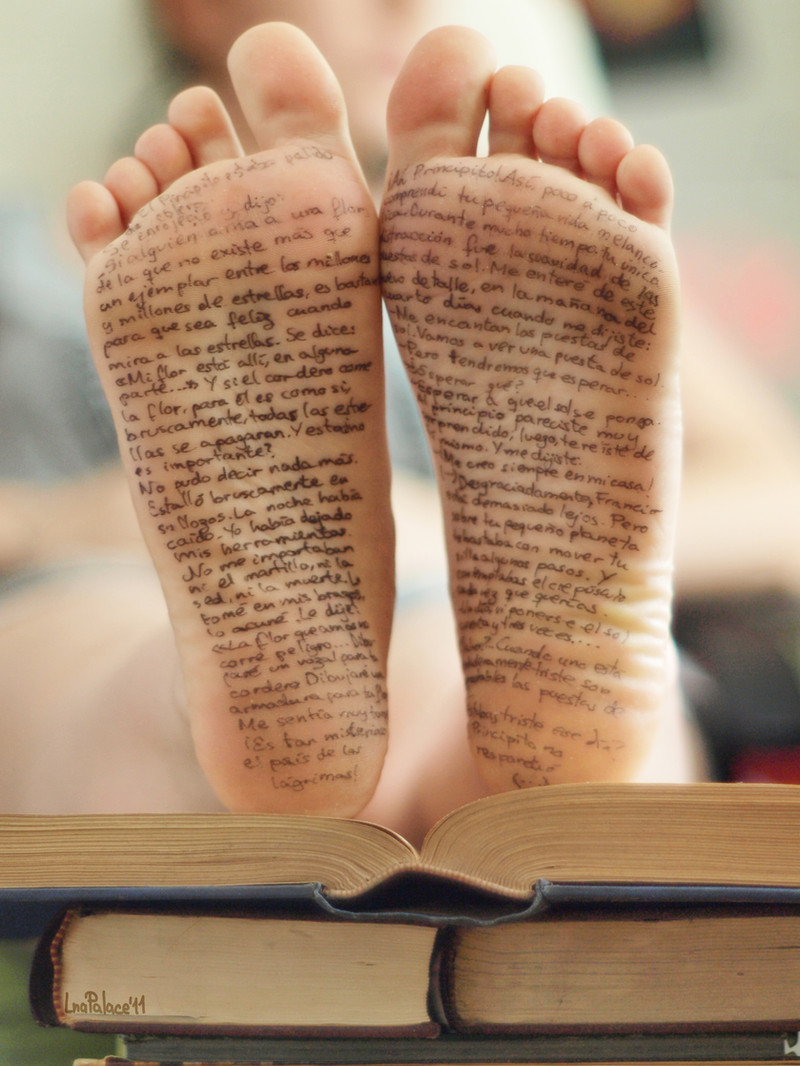 El Principito estaba palido
Se enrojeció y dijo:
Si alguien ama a una flor
de la que no existe más que
un ejemplar entre los millones
y millones de estrellas, es bastan
para que sea feliz cuando
mira a las estrellas. Se dice:
«Mi flor está allí, en alguna
parte...» Y si el cordero come
la flor, para él es como si,
bruscamente, todas las estre-
llas se apagaran. Y esto ¿no
es importante?
No pudo decir nada más.
Estalló bruscamente en
sollozos. La noche había
caído. Yo había dejado
mis herramientas.
No me importaban
ni el martillo, ni la
sed, ni la muerte. Lo
tomé en mis brazos,
lo acuné. Le dije:
«La flor que amas no
corre peligro...
un bozal para tu
cordero. Dibujaré un
armadura para tu
Me sentía muy
¡Es tan misterios
el país de las
lágrimas!
¡Ah Principito! Así, poco a poco
comprendí tu pequeña vida melancó-
Durante mucho tiempo tu única
distracción fue la suavidad de las
puestas de sol. Me enteré de este
detalle, en la mañana del
cuarto día, cuando me dijiste:
-Me encantan las puestas de
sol. Vamos a ver una puesta de sol.
-Pero tendremos que esperar...
-¿Esperar qué?
-Esperar a que el sol se ponga.
Al principio pareciste muy
sorprendido, luego, te reíste de
mismo. Y me dijiste:
¡Me creo siempre en mi casa!
Desgraciadamente, Francia
está demasiado lejos. Pero
sobre tu pequeño planeta
te bastaba con mover tu
silla algunos pasos. Y
contemplabas el crepúsculo
cada vez que querías.
ponerse el sol
y tres veces...
Cuando uno está
triste son
las puestas de
triste ese día?
Principito no
respondió
LnaPalace'11